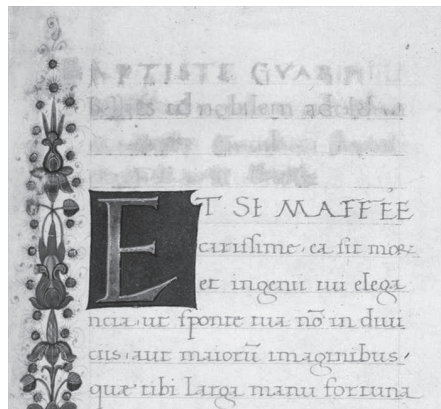 BAPTISTE GVARINI
ad nobilem
ET SI MAFFEE
carissime, ea sit moꝝ
et ingenii tui elega
ncia, ut sponte tua nõ in diui
ciis, aut maiorũ imaginibus,
quæ tibi larga manu fortuna